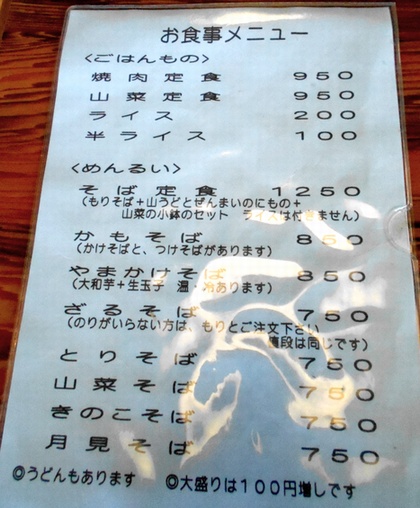 お食事メニュー
〈ごはんもの〉
焼肉定食 950
山菜定食 950
ライス 200
半ライス 100
〈めんるい〉
そば定食 1250
（もりそば＋山うどとぜんまいのにもの＋
山菜の小鉢のセット ライスは付きません）
かもそば 850
（かけそばと、つけそばがあります）
やまかけそば 850
（大和芋＋生玉子 温・冷あります）
ざるそば 750
（のりがいらない方は、もりとご注文下さい
値段は同じです）
とりそば 750
山菜そば 750
きのこそば 750
月見そば 750
◎うどんもあります ◎大盛りは１００円増しです